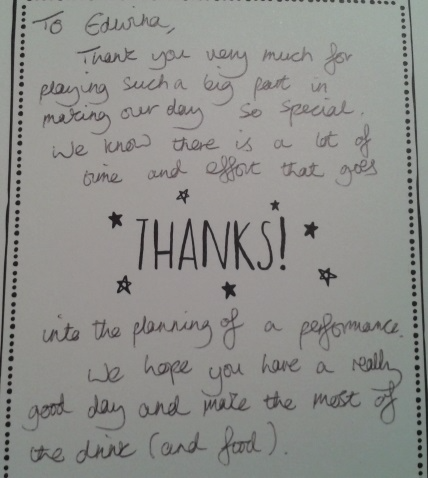 To Edwina,
Thank you very much for
playing such a big part in
making our day so special.
We know there is a lot of
time and effort that goes
THANKS!
into the planning of a performance.
We hope you have a really
good day and make the most of
the drink (and food).